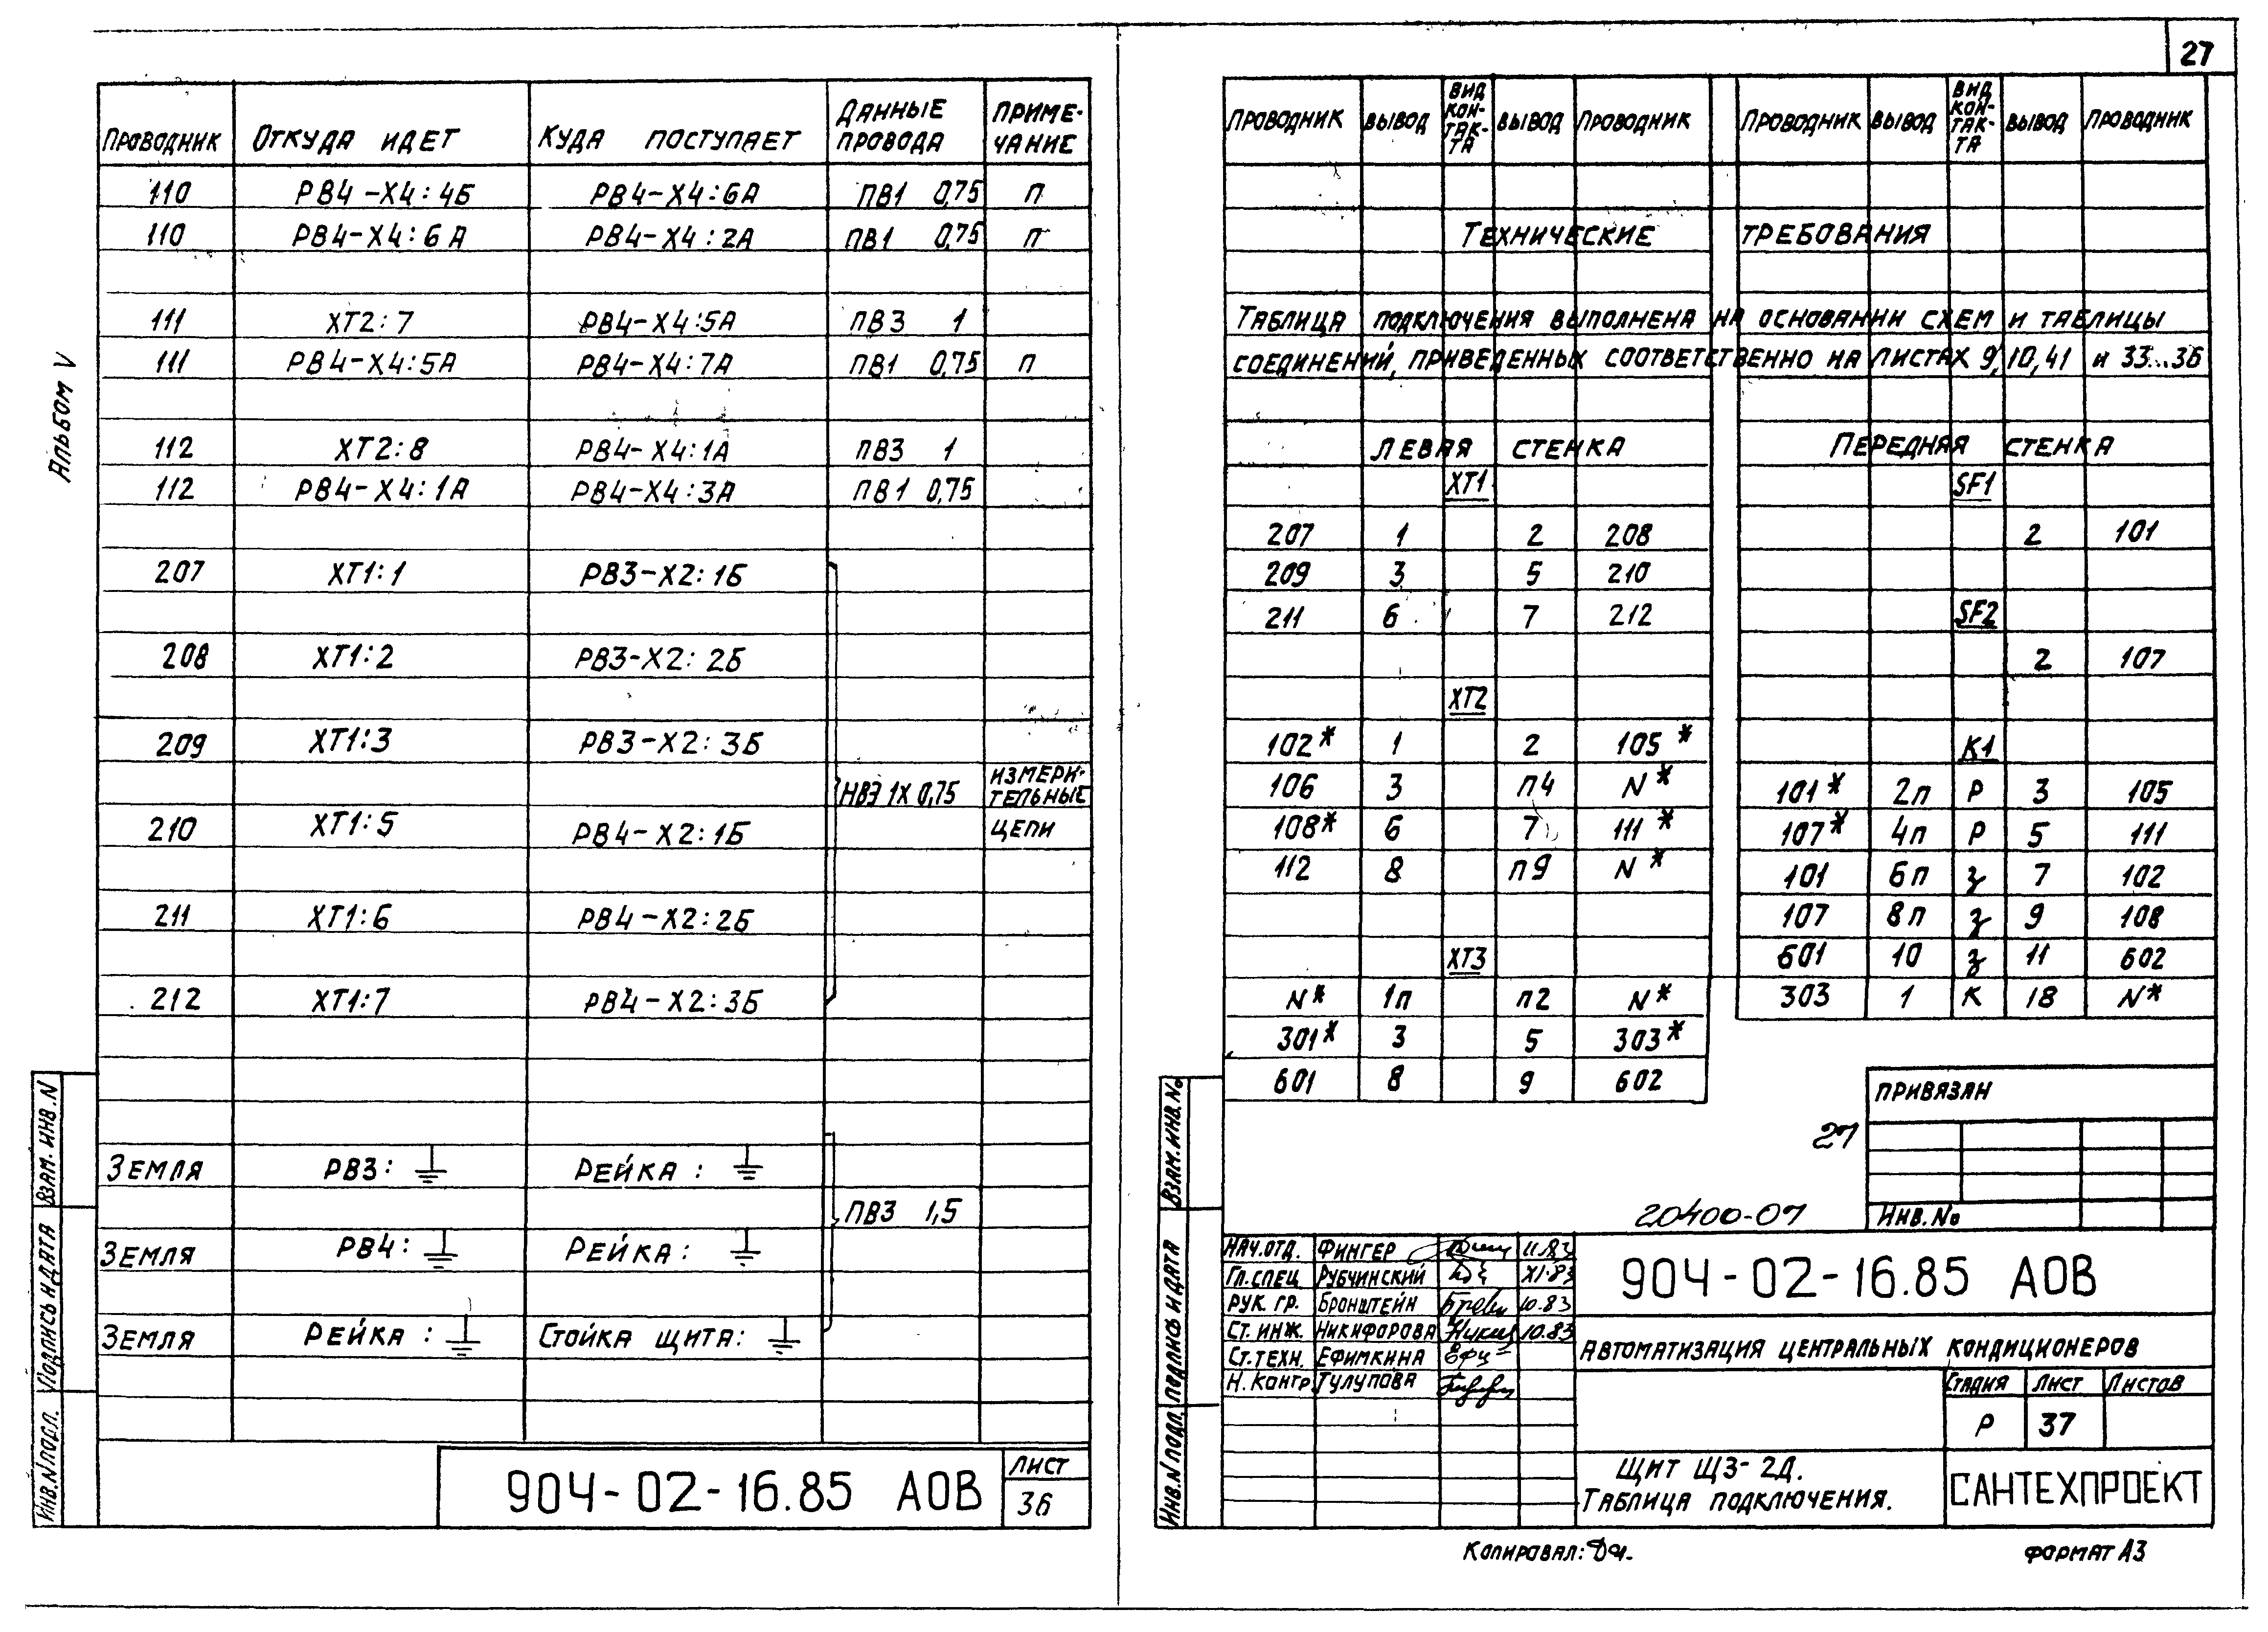 27
Альбом V
Проводник Откуда идет Куда поступает Данные провода Приме-чание
110 РВ4-Х4:4Б РВ4-Х4:6А ПВ1 0,75 П
110 РВ4-Х4:6А РВ4-Х4:2А ПВ1 0,75 П
111 ХТ2:7 РВ4-Х4:5А ПВ3 1
111 РВ4-Х4:5А РВ4-Х4:7А ПВ1 0,75 П
112 ХТ2:8 РВ4-Х4:1А ПВ3 1
112 РВ4-Х4:1А РВ4-Х4:3А ПВ1 0,75
207 ХТ1:1 РВ3-Х2:1Б
208 ХТ1:2 РВ3-Х2:2Б
209 ХТ1:3 РВ3-Х2:3Б
НВЭ 1Х0,75 Измери-тельные цепи
210 ХТ1:5 РВ4-Х2:1Б
211 ХТ1:6 РВ4-Х2:2Б
212 ХТ1:7 РВ4-Х2:3Б
Земля РВ3: Рейка:
ПВ3 1,5
Земля РВ4: Рейка:
Земля Рейка: Стойка щита:
904-02-16.85 АОВ
Лист
36
Инв.N подл. Подпись и дата Взам.инв.N
Проводник Вывод Вид кон-так-та Вывод Проводник Проводник Вывод Вид кон-так-та Вывод Проводник
Технические требования
Таблица подключения выполнена на основании схем и таблицы
соединений, приведенных соответственно на листах 9,10,41 и 33...36
Левая стенка Передняя стенка
ХТ1 SF1
207 1 2 208 2 101
209 3 5 210
211 6 7 212 SF2
2 107
ХТ2
102* 1 2 105* К1
106 3 П4 N* 101* 2п Р 3 105
108* 6 7 111* 107* 4п Р 5 111
112 8 П9 N* 101 6п З 7 102
107 8п З 9 108
ХТ3 601 10 З 11 602
N* 1п п2 N* 303 1 К 18 N*
301* 3 5 303*
601 8 9 602
Привязан
27
20400-07
Инв.No
Инв.N подл. Подпись и дата Взам.инв.No
Нач.отд. Фингер 11.83
Гл.спец Рубчинский XI.83
Рук. гр. Бронштейн 10.83
Ст.инж. Никифорова 10.83
Ст.техн. Ефимкина
Н.контр. Тулупова
904-02-16.85 АОВ
Автоматизация центральных кондиционеров
Стадия Лист Листов
Р 37
Щит ЩЗ-2Д.
Таблица подключения.
САНТЕХПРОЕКТ
Копировал:
Формат А3